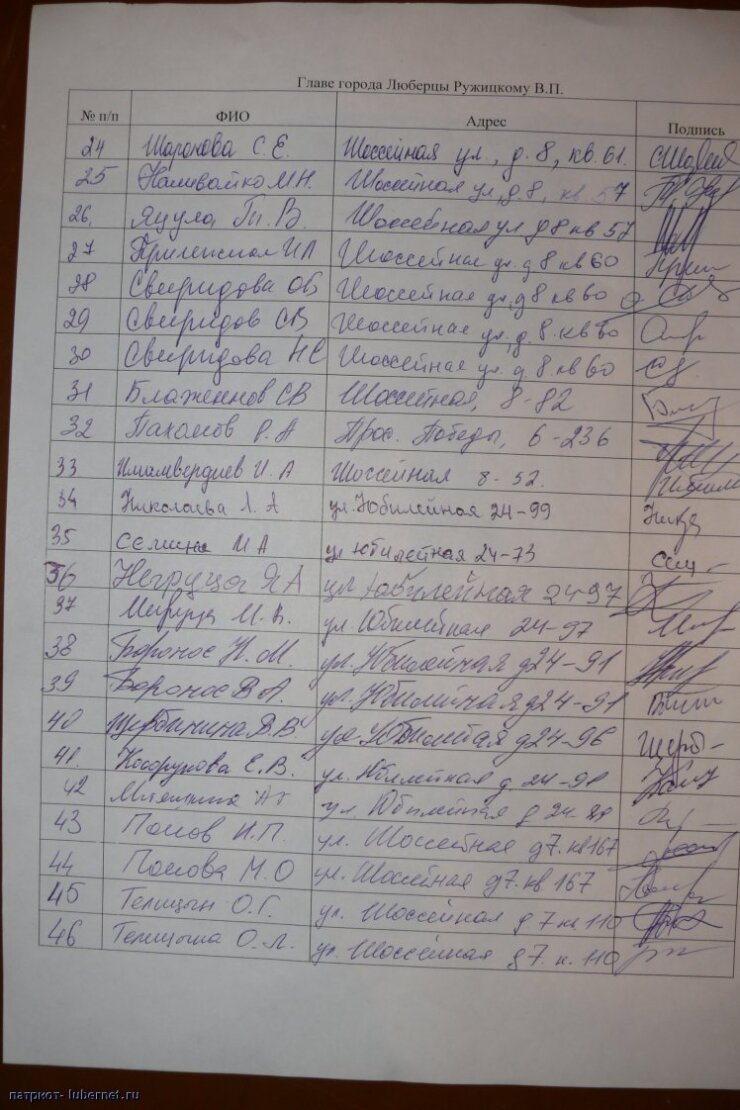 Главе города Люберцы Ружицкому В.П.
№ п/п ФИО Адрес Подпись
24 Шаронова С. Е. Шоссейная ул., д. 8, кв. 61.
25 Наливайко М.Н. Шоссейная ул, д 8, кв 57
26. Яцула В. Шоссейная ул д 8 кв 57
27 Шоссейная ул. д 8 кв 60
28 Свиридова ОВ Шоссейная ул. д 8 кв 60
29 Свиридов СВ Шоссейная ул. д. 8. кв 60
30 Свиридова НС Шоссейная ул. д. 8 кв 60
31 Блаженнов СВ Шоссейная, 8-82
32 Пахомов Р. А Прос. Победы, 6-236
33 Имамвердиев И. А Шоссейная 8-52.
34 Николаева Л. А ул. Юбилейная 24-99
35 Семина М А ул юбилейная 24-73
36 Негруца Я А ул юбилейная 24-97
37 М. В. ул. Юбилейная 24-97
38 Боронос Н. М. ул. Юбилейная д 24-91
39 Боронос В А. ул. Юбилейная д 24-91
40 Щербинина В. В ул Юбилейная д 24-96
41. Е. В. ул. Юбилейная д. 24-
42 ул. Юбилейная д 24.
43 Попов И. П. ул. Шоссейная д 7. кв 167
44 Попова М. О ул. Шоссейная д 7. кв 167
45 Телицын О. Г. ул. Шоссейная д 7 кв 110
46 Телицына О. Л. ул. Шоссейная д 7. к. 110
патркот- lubernet.ru